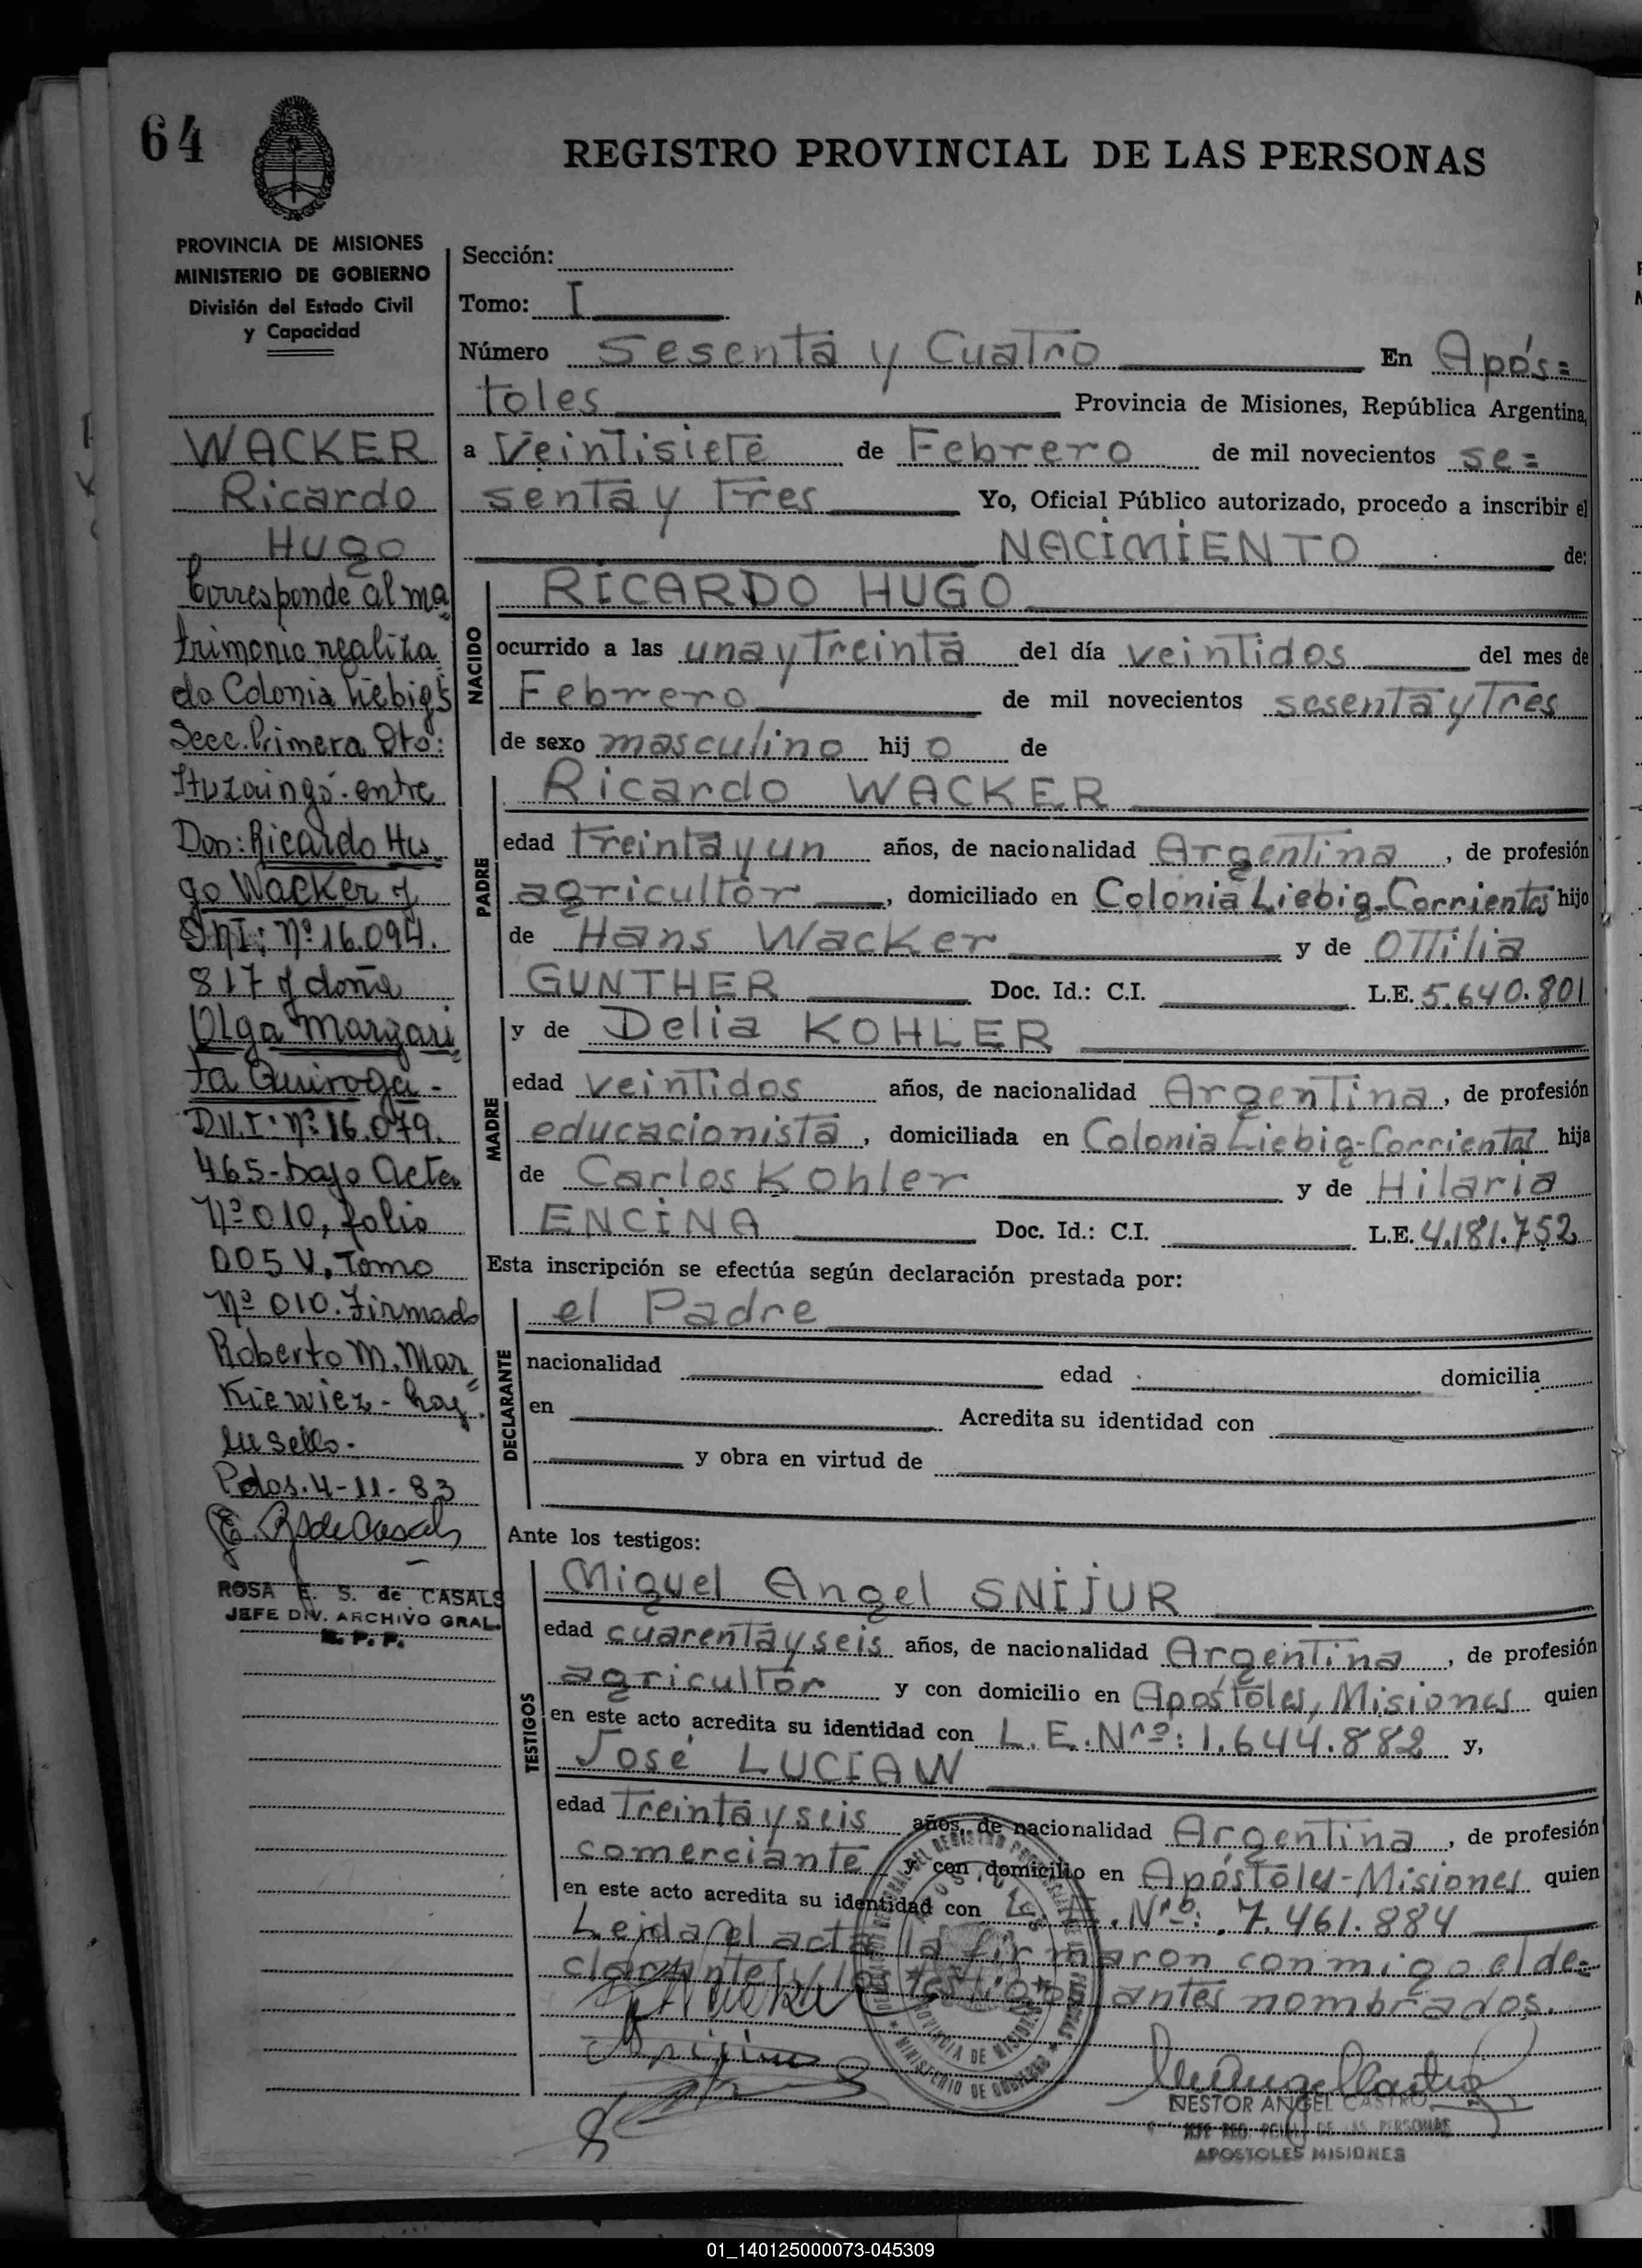 64
REGISTRO PROVINCIAL DE LAS PERSONAS
PROVINCIA DE MISIONES
MINISTERIO DE GOBIERNO
División del Estado Civil
y Capacidad
WACKER
Ricardo
Hugo
Corresponde al ma
trimonio realiza
do Colonia Liebig's
Secc. Primera Dto:
Ituzaingó - entre
Don: Ricardo Hu
go Wacker y
DNI: Nº 16.094.
817 y doña
Olga Margari
ta Quiroga -
D.N.I. Nº 16.079.
465 - bajo Acta
Nº 010, folio
005 V, Tomo
Nº 010. Firmado
Roberto M. Mar
Kiewiez - hay
un sello.
Pdos. 4-11-83
ROSA E. S. de CASALS
JEFE DIV. ARCHIVO GRAL.
R. P. P.
Sección:
Tomo: I
Número Sesenta y Cuatro En Após=
toles Provincia de Misiones, República Argentina,
a Veintisiete de Febrero de mil novecientos se=
senta y Tres Yo, Oficial Público autorizado, procedo a inscribir el
NACIMIENTO de:
NACIDO
RICARDO HUGO
ocurrido a las una y Treinta del día veintidos del mes de
Febrero de mil novecientos sesenta y Tres
de sexo masculino hijo de
PADRE
Ricardo WACKER
edad Treinta y un años, de nacionalidad Argentina, de profesión
agricultor, domiciliado en Colonia Liebig-Corrientes hijo
de Hans Wacker y de Ottilia
GUNTHER Doc. Id.: C.I. L.E. 5.640.801
MADRE
y de Delia KOHLER
edad veintidos años, de nacionalidad Argentina, de profesión
educacionista, domiciliada en Colonia Liebig-Corrientes hija
de Carlos Kohler y de Hilaria
ENCINA Doc. Id.: C.I. L.E. 4.181.752
Esta inscripción se efectúa según declaración prestada por:
DECLARANTE
el Padre
nacionalidad edad domicilia
en Acredita su identidad con
y obra en virtud de
Ante los testigos:
TESTIGOS
Miguel Angel SNIJUR
edad cuarenta y seis años, de nacionalidad Argentina, de profesión
agricultor y con domicilio en Apóstoles, Misiones quien
en este acto acredita su identidad con L.E. Nrº: 1.644.882 y,
José LUCIAW
edad Treinta y seis años, de nacionalidad Argentina, de profesión
comerciante y con domicilio en Apóstoles-Misiones quien
en este acto acredita su identidad con L.E. Nrº: 7.461.884
Leida el acta la firmaron conmigo el de=
clarante y los testigos antes nombrados.
PROVINCIA DE MISIONES
MINISTERIO DE GOBIERNO
NESTOR ANGEL CASTRO
JEFE REG. PCIAL DE LAS PERSONAS
APOSTOLES MISIONES
01_140125000073-045309